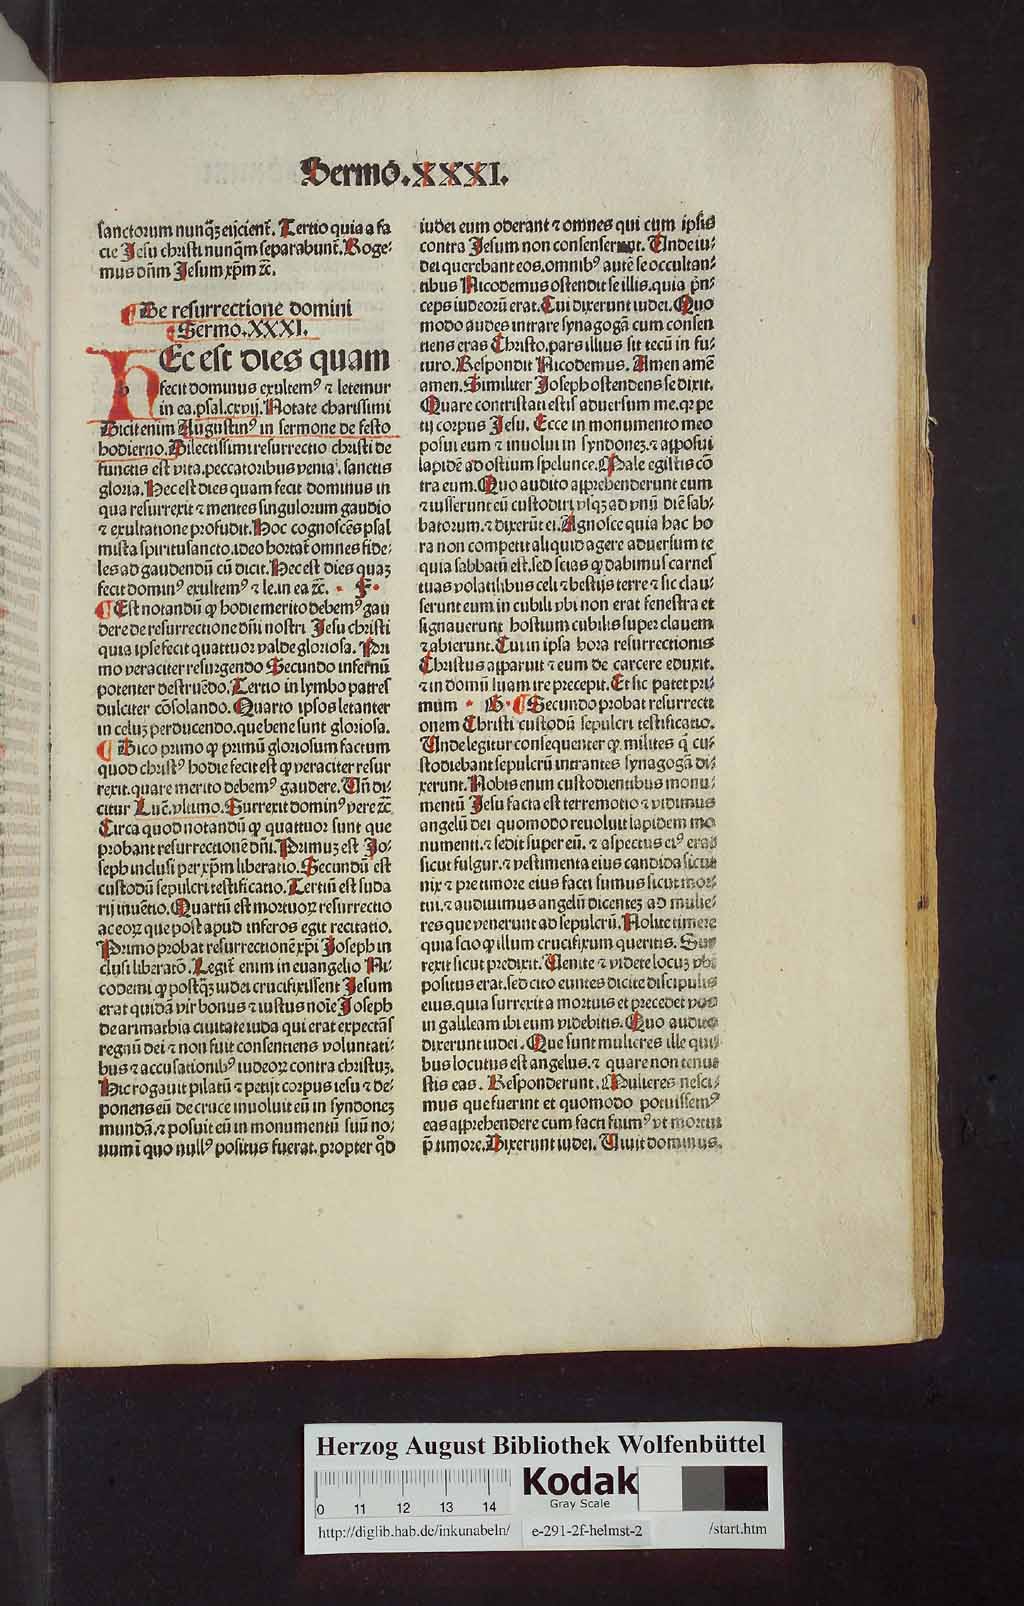 Sermo.XXXI.
sanctorum nunqꝫ eijcient̄. Tertio quia a fa
cie Jesu christi nunqm̄ separabunt̄. Roge⸗
mus dn̄m Jesum xp̄m ꝛc̄.
De resurrectione domini
Sermo.XXXI.
HEc est dies quam
fecit dominus exultemꝰ ⁊ letemur
in ea. psal. cxvij. Notate charissimi
Dicit enim Augustinꝰ in sermone de festo
hodierno. Dilectissimi resurrectio christi de
functis est vita. peccatoribus venia. sanctis
gloria. Hec est dies quam fecit dominus in
qua resurrexit ⁊ mentes singulorum gaudio
⁊ exultatione profudit. Hoc cognoscēs psal
mista spiritusancto. ideo hortat̄ omnes fide⸗
les ad gaudendū cū dicit. Hec est dies quaꝫ
fecit dominꝰ exultemꝰ ⁊ le. in ea ꝛc̄. F.
Est notandū ꝙ hodie merito debemꝰ gau
dere de resurrectione dn̄i nostri Jesu christi
quia ipse fecit quattuor valde gloriosa. Pri
mo veraciter resurgendo Secundo infernū
potenter destruēdo. Tertio in lymbo patres
dulciter cōsolando. Quarto ipsos letanter
in celuꝫ perducendo. que bene sunt gloriosa.
Dico primo ꝙ primū gloriosum factum
quod christꝰ hodie fecit est ꝙ veraciter resur
rexit. quare merito debemꝰ gaudere. Vn̄ di⸗
citur Luc̄. vltimo. Surrexit dominꝰ vere ꝛc̄
Circa quod notandū ꝙ quattuor sunt que
probant resurrectionē dn̄i. Primuꝫ est Jo⸗
seph inclusi per xp̄m liberatio. Secundū est
custodū sepulcri testificatio. Tertiū est suda
rij inuētio. Quartū est mortuoꝝ resurrectio
ac eoꝝ que post apud inferos egit recitatio.
Primo probat resurrectionē xp̄i Joseph in
clusi liberatō. Legit̄ enim in euangelio Ni⸗
codemi ꝙ postqꝫ iudei crucifixissent Jesum
erat quidā vir bonus ⁊ iustus noīe Joseph
de arimathia ciuitate iuda qui erat expectās
regnū dei ⁊ non fuit consentiens voluntati⸗
bus ⁊ accusationibꝰ iudeoꝝ contra christuꝫ.
Hic rogauit pilatū ⁊ petijt corpus iesu ⁊ de⸗
ponens eū de cruce inuoluit eū in syndoneꝫ
mundā. ⁊ posuit eū in monumentū suū no⸗
uum ī quo nullꝰ positus fuerat. propter qd̄
iudei eum oderant ⁊ omnes qui cum ipsis
contra Jesum non consenserunt. Vnde iu⸗
dei querebant eos. omnibꝰ autē se occultan⸗
tibus Nicodemus ostendit se illis. quia prin̄⸗
ceps iudeorū erat. Cui dixerunt iudei. Quo
modo audes intrare synagogā cum consen
tiens eras Christo. pars illius sit tecū in fu⸗
turo. Respondit Nicodemus. Amen amē
amen. Similiter Joseph ostendens se dixit.
Quare contristati estis aduersum me. qꝛ pe
tij corpus Jesu. Ecce in monumento meo
posui eum ⁊ inuolui in syndoneꝫ. ⁊ apposui
lapidē ad ostium spelunce. Male egistis cō
tra eum. Quo audito apprehenderunt eum
⁊ iusserunt eū custodiri vsqꝫ ad vnū diē sab⸗
batorum. ⁊ dixerūt ei. Agnosce quia hac ho
ra non competit aliquid agere aduersum te
quia sabbatū est. sed scias ꝙ dabimus carnes
tuas volatilibus celi ⁊ bestijs terre ⁊ sic clau⸗
serunt eum in cubili vbi non erat fenestra et
signauerunt hostium cubilis super clauem
⁊ abierunt. Cui in ipsa hora resurrectionis
Christus apparuit ⁊ eum de carcere eduxit.
⁊ in domū suam ire precepit. Et sic patet pri⸗
mum G. Secundo probat resurrecti
onem Christi custodū sepulcri testificatio.
Vnde legitur consequenter ꝙ milites q̄ cu⸗
stodiebant sepulcrū intrantes synagogā di⸗
xerunt. Nobis enim custodientibus monu⸗
mentū Jesu facta est terremotio ⁊ vidimus
angelū dei quomodo reuoluit lapidem mo
numenti. ⁊ sedit super eū. ⁊ aspectus eiꝰ erat
sicut fulgur. ⁊ vestimenta eius candida sicut
nix ⁊ pre timore eius facti sumus sicut mor⸗
tui. ⁊ audiuimus angelū dicenteꝫ ad mulie⸗
res que venerunt ad sepulcrū. Nolite timere
quia scio ꝙ illum crucifixum queritis. Sur
rexit sicut predixit. Venite ⁊ videte locuꝫ vbi
positus erat. sed cito euntes dicite discipulis
eius. quia surrexit a mortuis et precedet vos
in galileam ibi eum videbitis. Quo audito
dixerunt iudei. Que sunt mulieres ille qui⸗
bus locutus est angelus. ⁊ quare non tenui
stis eas. Responderunt. Mulieres nesci⸗
mus que fuerint et quomodo potuissemꝰ
eas apprehendere cum facti fuimꝰ vt mortui
p̄ timore. Dixerunt iudei. Viuit dominus.
Herzog August Bibliothek Wolfenbüttel
Kodak
Gray Scale
0 11 12 13 14
http://diglib.hab.de/inkunabeln/ e-291-2f-helmst-2 /start.htm